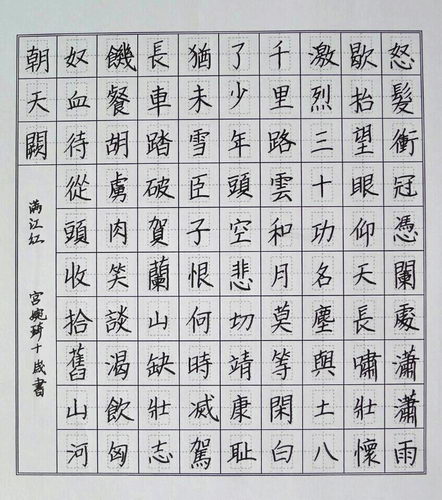 怒髮衝冠憑闌處瀟瀟雨
歇抬望眼仰天長嘯壯懷
激烈三十功名塵與土八
千里路雲和月莫等閑白
了少年頭空悲切靖康耻
猶未雪臣子恨何時滅駕
長車踏破賀蘭山缺壯志
饑餐胡虜肉笑談渴飲匈
奴血待從頭收拾舊山河
朝天闕
满江红 宮婉琦十歲書